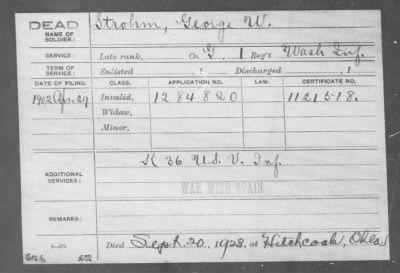 DEAD
NAME OF SOLDIER: Strohm, George W.
SERVICE: Late rank, Co. G, 1 Reg't Wash Inf.
TERM OF SERVICE: Enlisted , 1 Discharged , 1
DATE OF FILING. CLASS. APPLICATION NO. LAW. CERTIFICATE NO.
1902 Apr. 29 Invalid, 1284820 1121518.
Widow,
Minor,
K 36 U.S.V. Inf.
ADDITIONAL SERVICES:
WAR WITH SPAIN
REMARKS:
Died Sept. 20, 1928, at Hitchcock, Okla